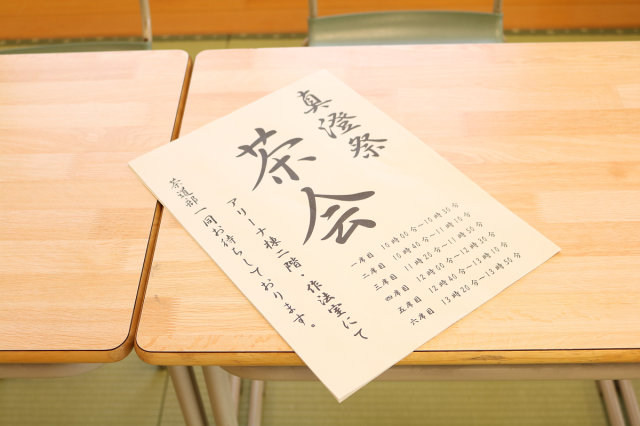 真澄祭
茶会
一席目 10時00分～10時30分
二席目 10時40分～11時10分
三席目 11時20分～11時50分
四席目 12時00分～12時30分
五席目 12時40分～13時10分
六席目 13時20分～13時50分
アリーナ棟二階・作法室にて
茶道部一同お待ちしております。